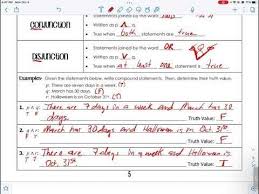 CONJUNCTION
Statements joined by the word
Written as
both statement true
DISJUNCTION
Statements joined by the word OR
Written as V
at least one statement is true
Examples: Given the statements below, write compound statements. Then, determine their truth value.
p: There are seven days in a week. (T)
q: March has 30 days. (F)
r: Halloween is on October 31st. (T)
1. p ∧ q: There are 7 days in a week and March has 30
T F days. Truth Value: F
2. q ∧ r: March has 30 days and Halloween is on Oct 31st
F T Truth Value: F
3. p ∧ r: There are 7 days in a week and Halloween is
T T on Oct 31st Truth Value: T
5